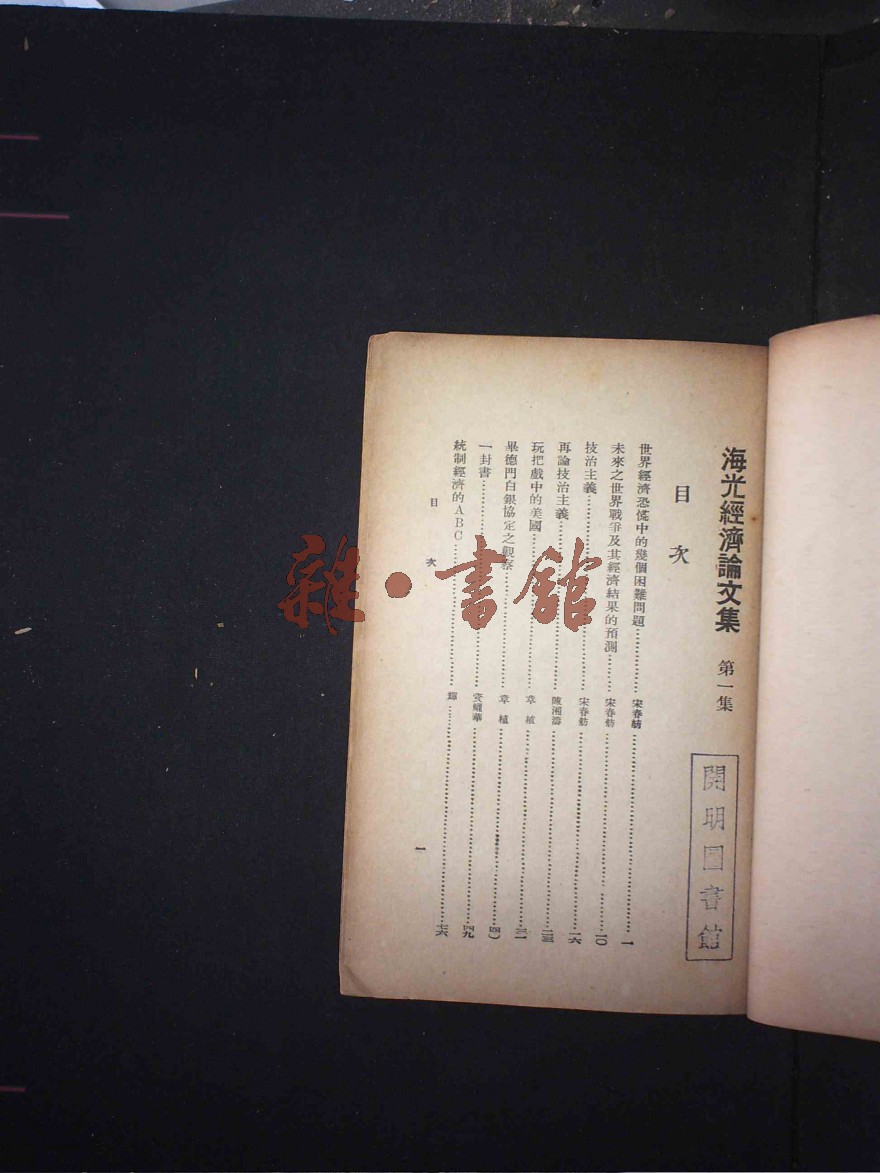 海光經濟論文集 第一集
目次
世界經濟恐慌中的幾個困難問題……宋春舫……一
未來之世界戰爭及其經濟結果的預測……宋春舫……一〇
技治主義……宋春舫……一六
再論技治主義……陳湘濤……二三
玩把戲中的美國……章植……三一
畢德門白銀協定之觀察……章植……四〇
一封書……資耀華……四九
統制經濟的ABC……輝……六
目次
一
開明圖書館
雜·書館